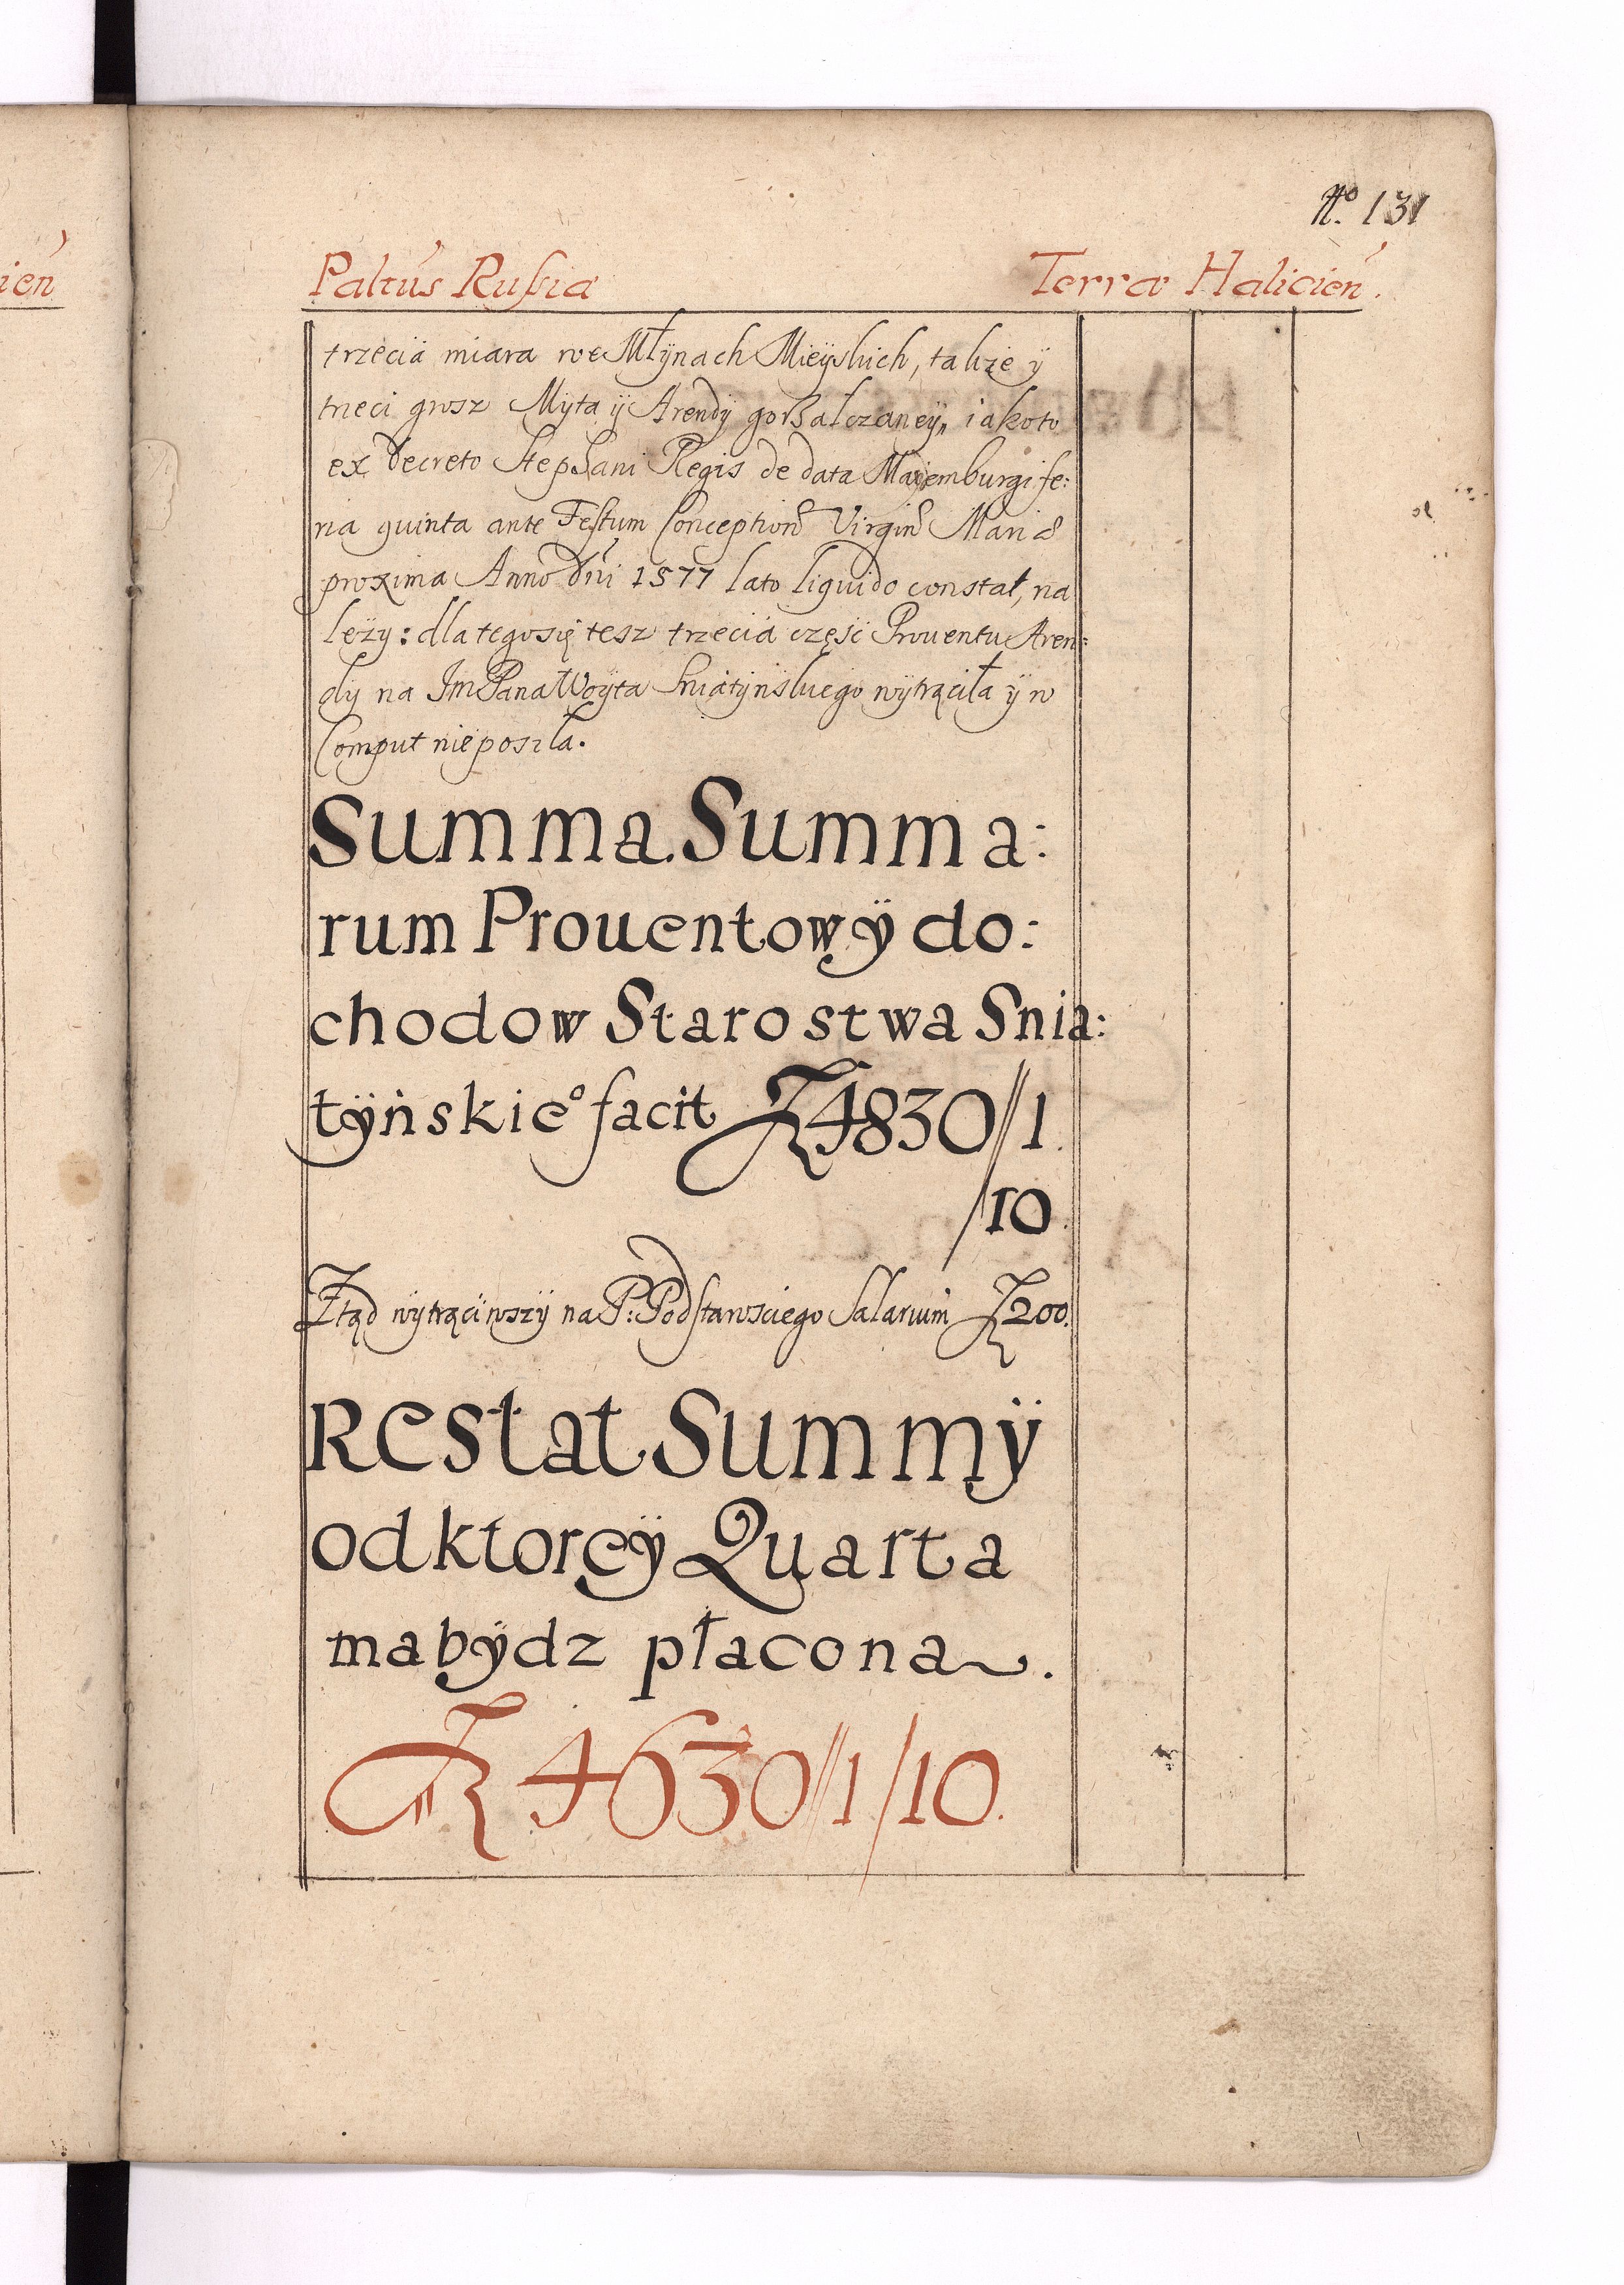 No. 131
ien
Paltus Russia Terræ Halicien.
trzecia miara we Młÿnach Mieÿskich, takze ÿ
trzeci grosz Myta ÿ Arendÿ gorzałczaneÿ, iakoto
ex Decreto Stephani Regis de data Mariemburgi fe:
ria quinta ante Festum Conceptionis Virginis Mariæ
proxima Anno Dni 1577 lato liquido constat, na
lezy: dla tego się tesz trzecia część Prouentu Aren:
dÿ na Im Pana Woÿta Sniatÿnskiego wÿtrąciła ÿ w
Comput nie poszła.
Summa Summa:
rum Prouentow ÿ do:
chodow Starostwa Snia:
tÿnskie° facit Z 4830//1.
/10.
Ztąd wÿtrąciwszÿ na P: Podstarosciego Salarium Z 200.
Restat Summÿ
od ktoreÿ Quarta
ma bÿdz płacona.
Z 4630//1/10.